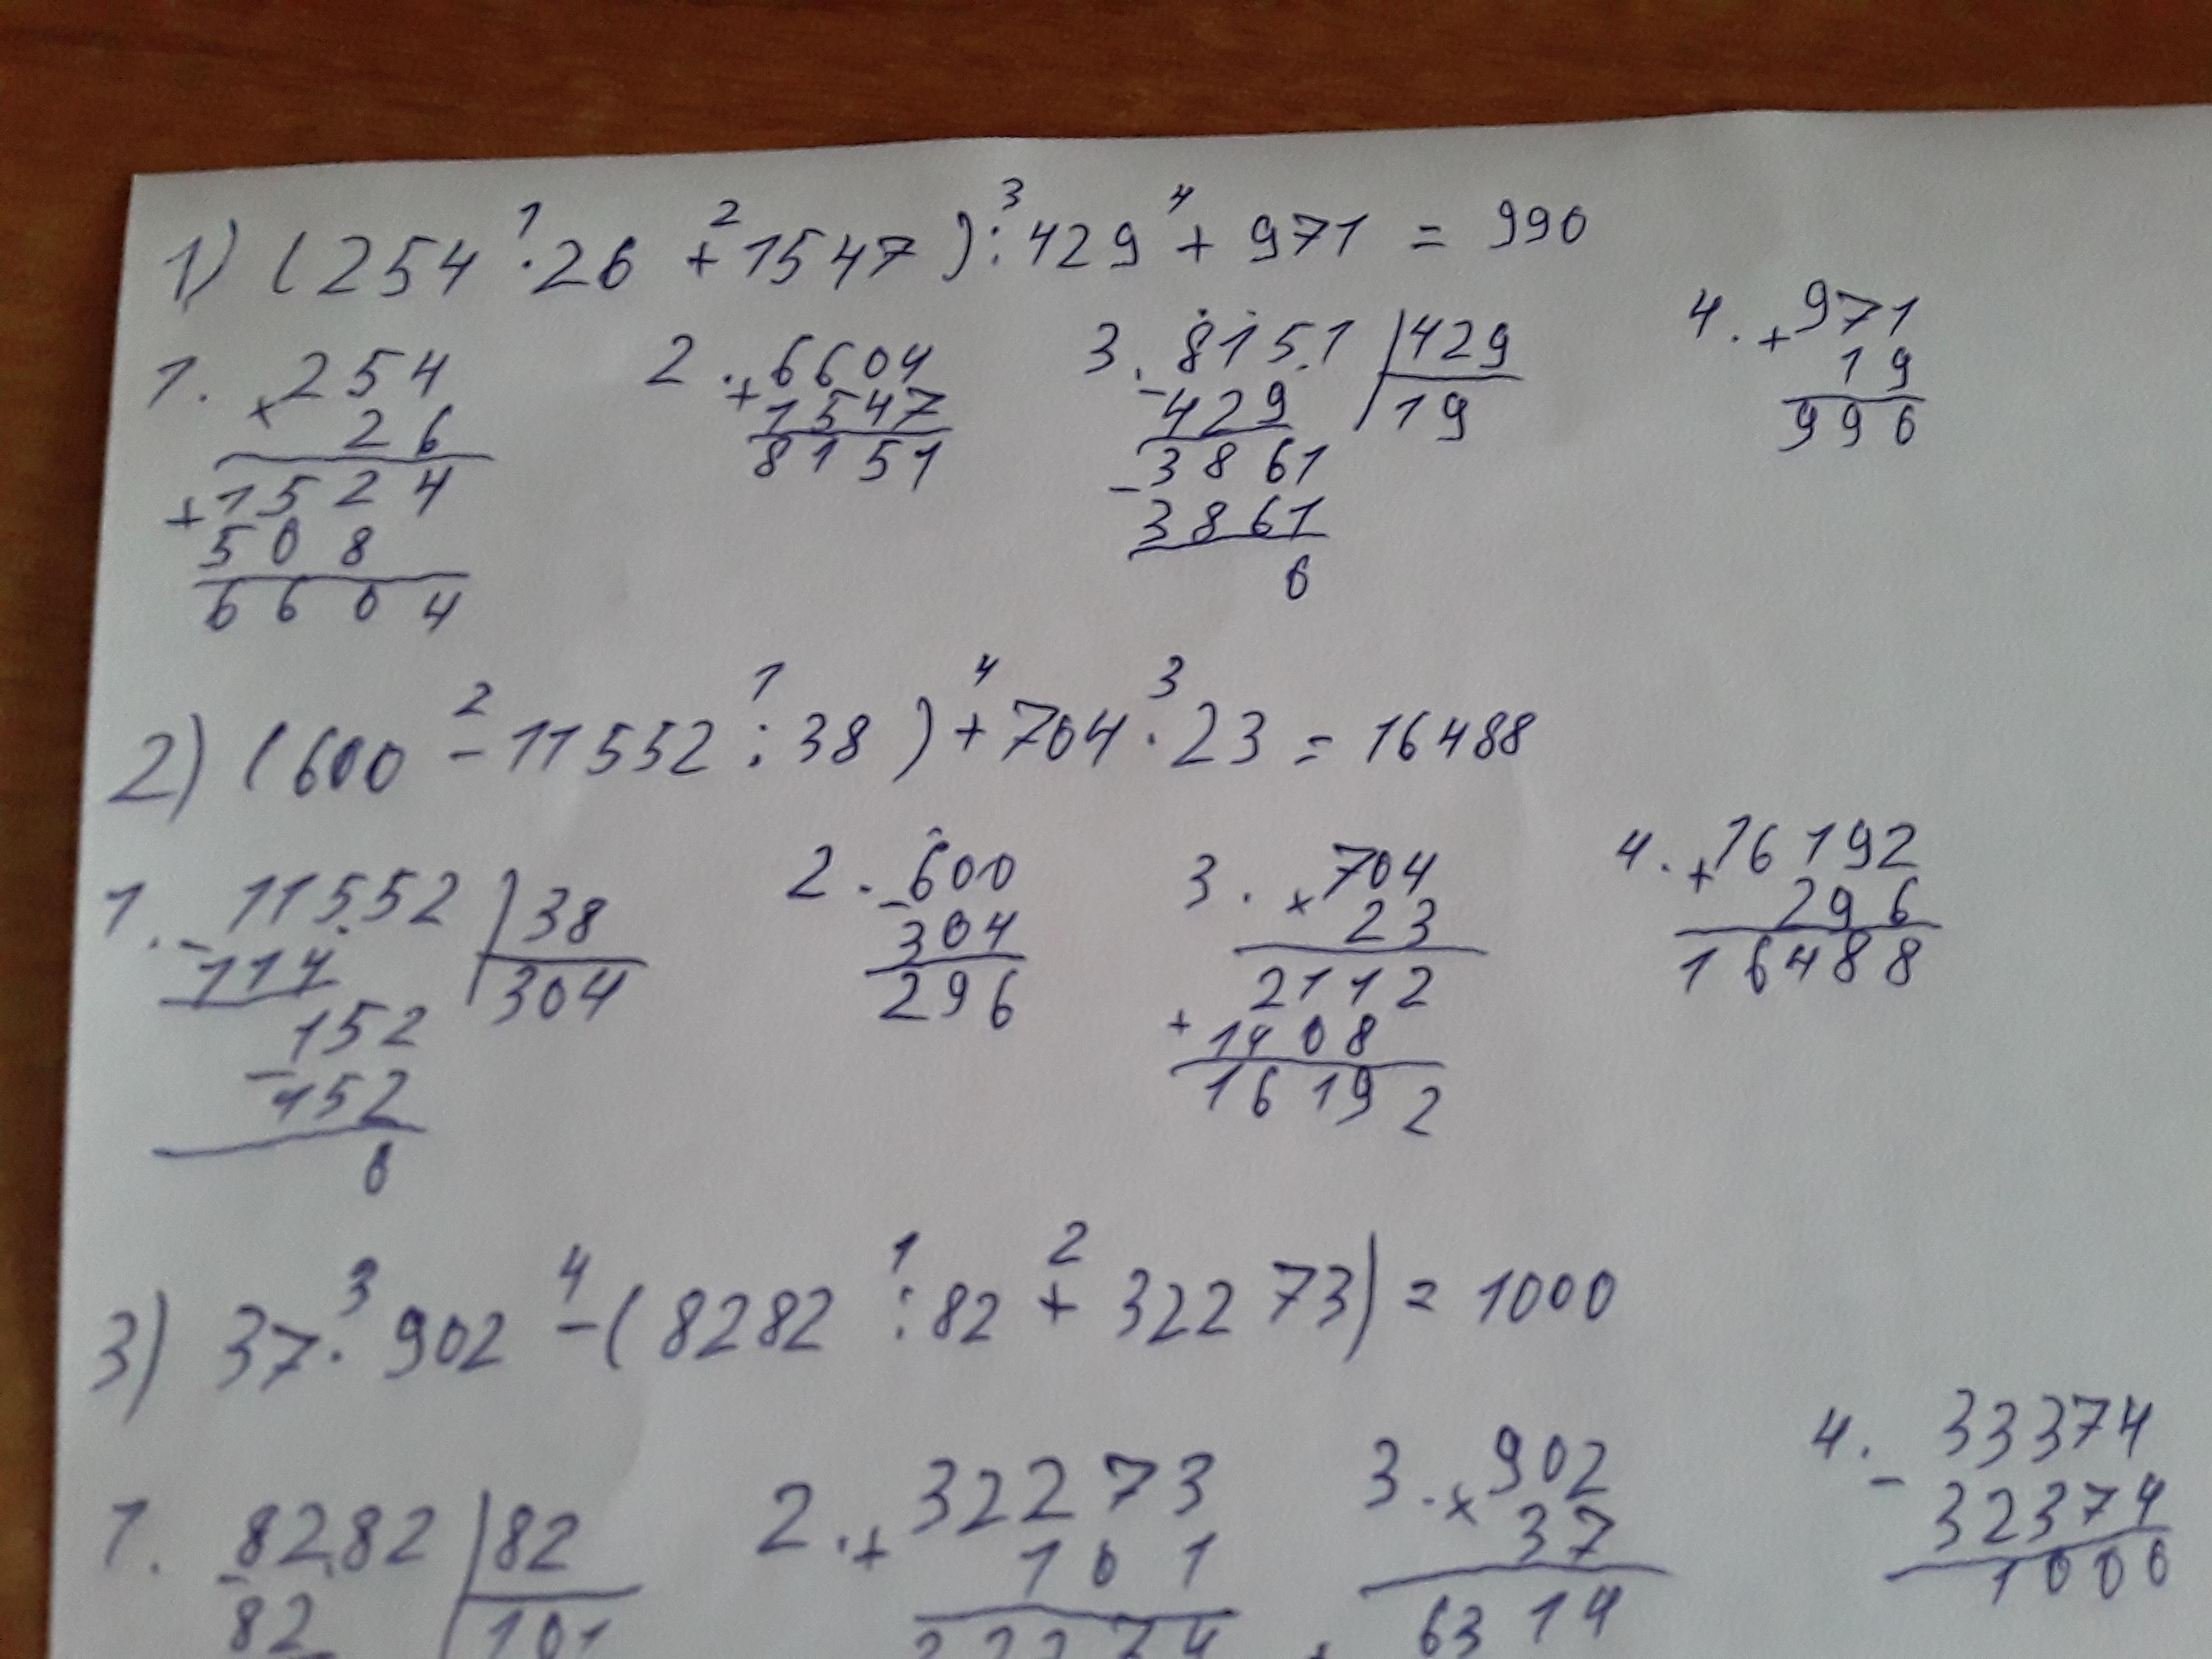 1) (254 · 26 + 1547) : 429 + 971 = 990
1 2 3 4
1. × 254
26
+ 1524
508
6604
2. + 6604
1547
8151
3. - 8151 | 429
429 | 19
- 3861
3861
0
4. + 971
19
990
2) (600 - 11552 : 38) + 704 · 23 = 16488
2 1 4 3
1. - 11552 | 38
114 | 304
- 152
152
0
2. - 600
304
296
3. × 704
23
2112
+ 1408
16192
4. + 16192
296
16488
3) 37 · 902 - (8282 : 82 + 32273) = 1000
3 4 1 2
1. - 8282 | 82
82 | 101
2. + 32273
101
32374
3. × 902
37
6314
+
4. - 33374
32374
1000